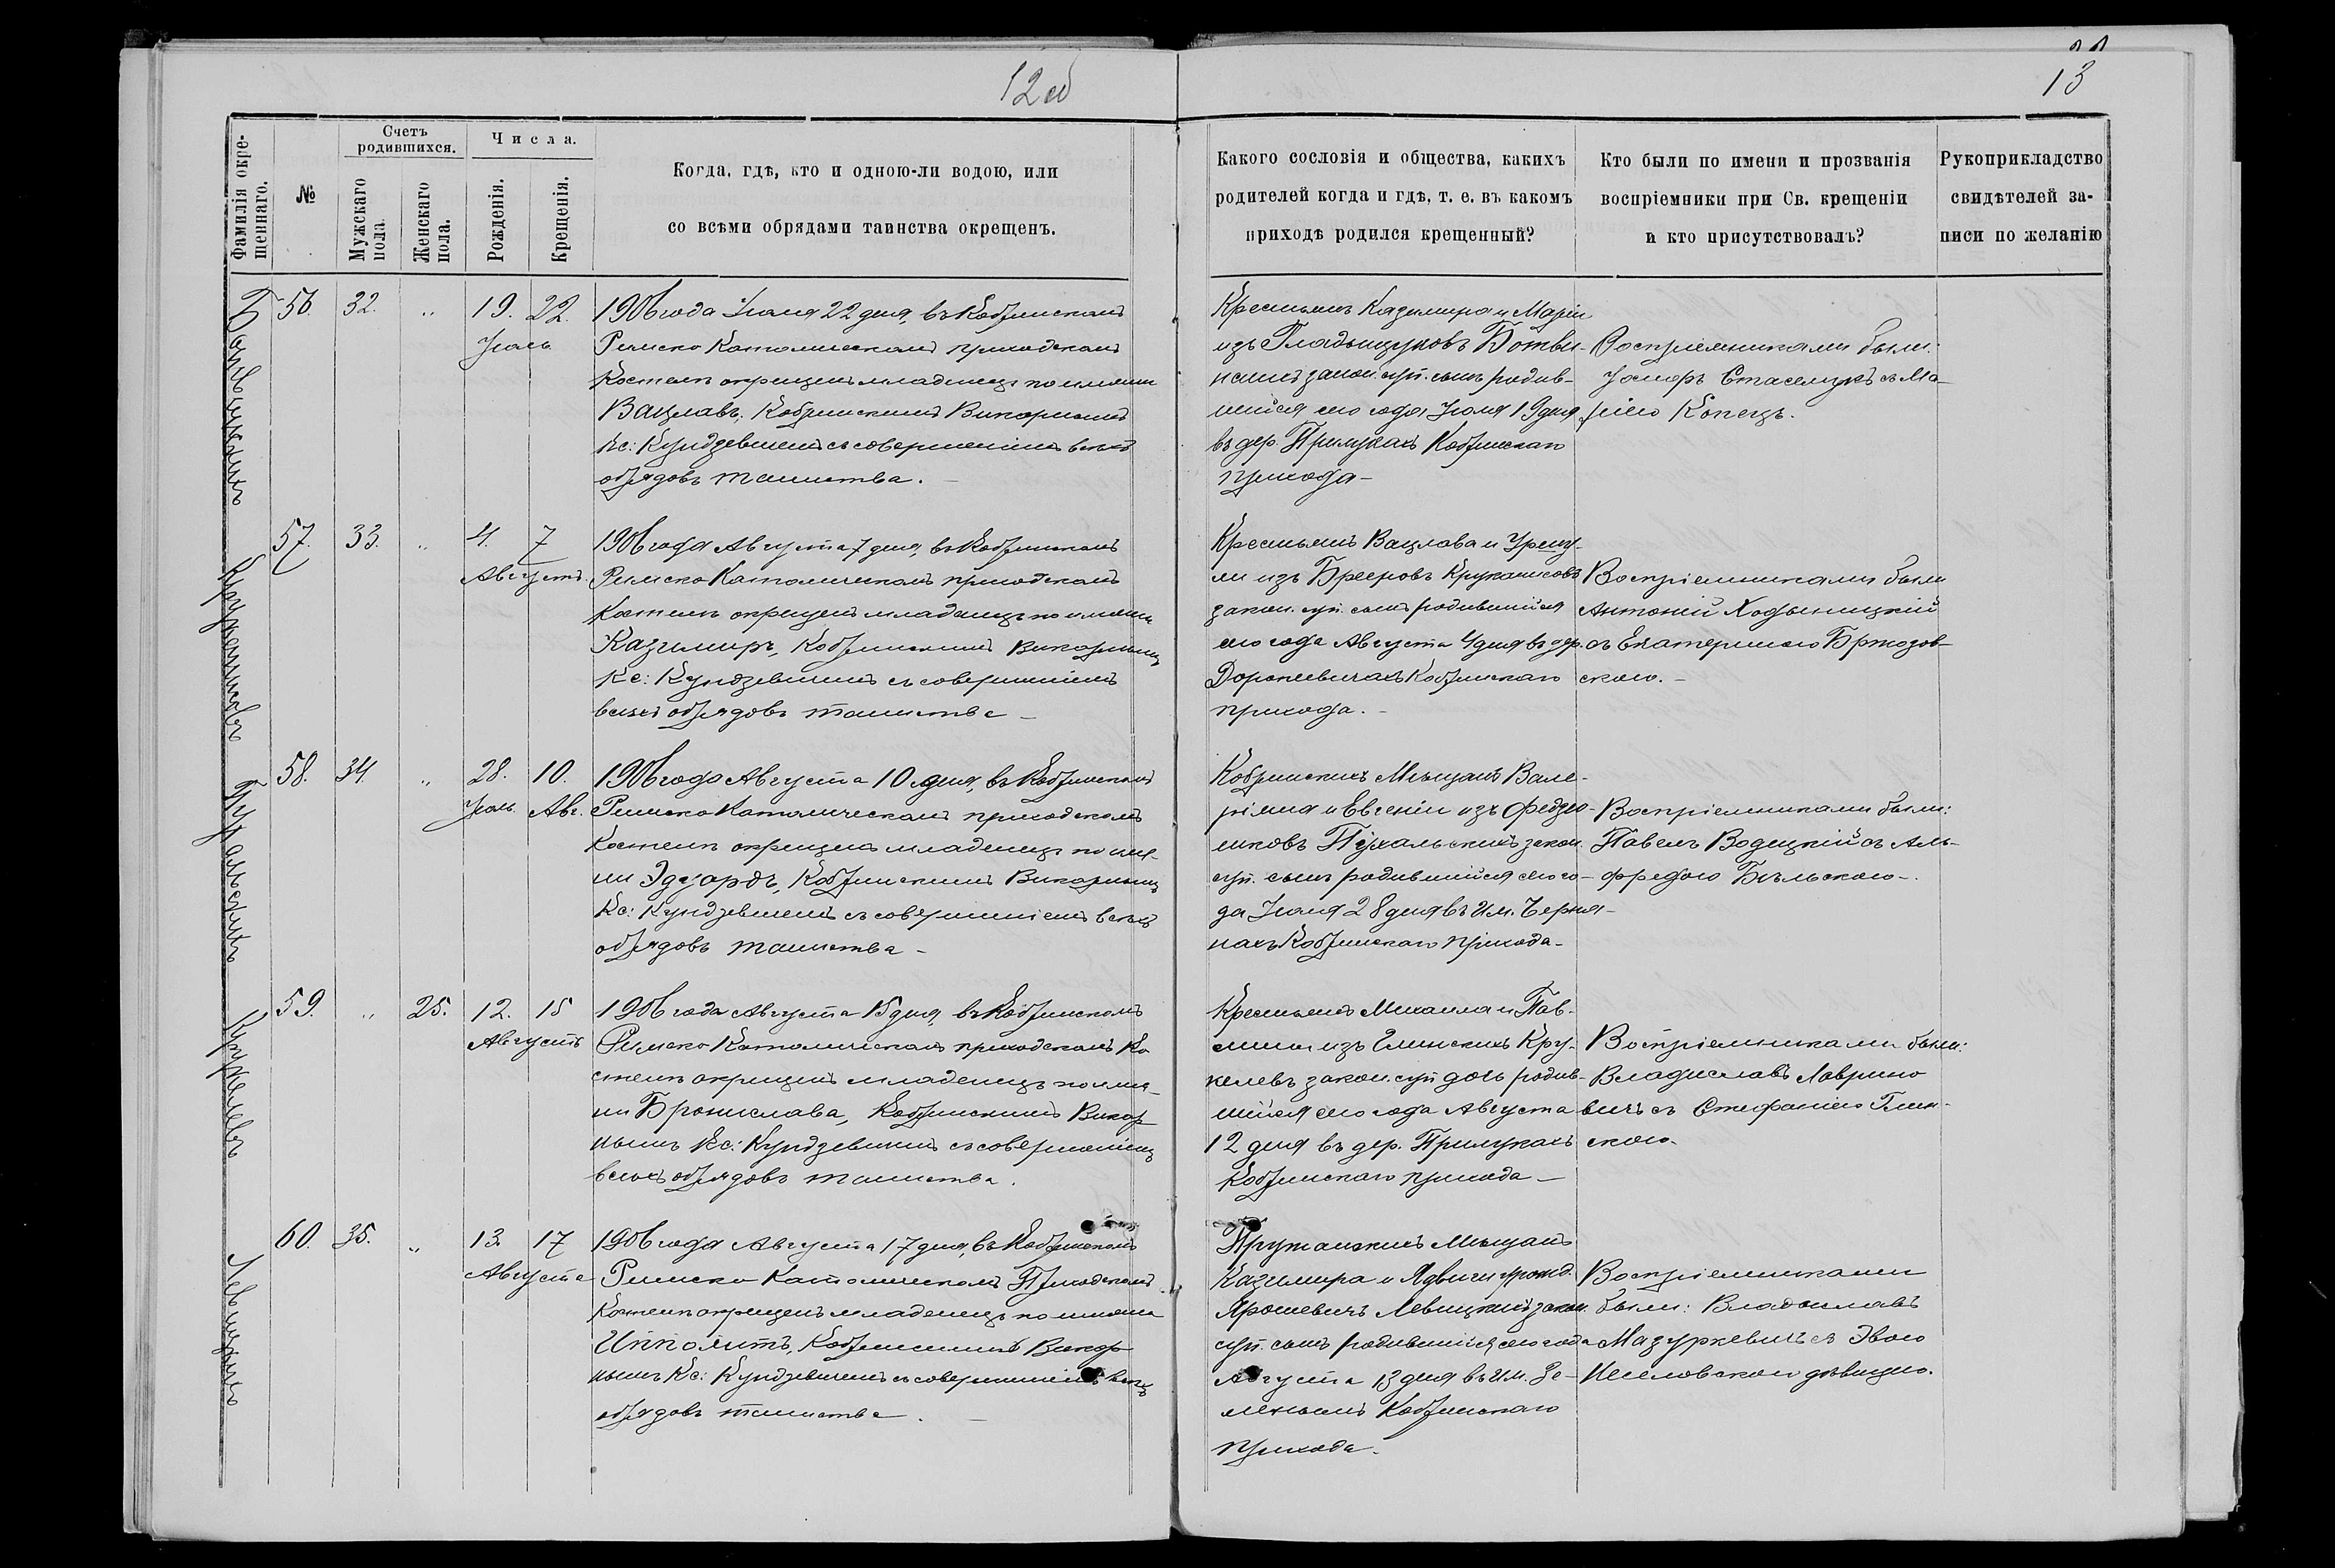 12об
13
Фамилія окре-
щеннаго.
№
Счетъ
родившихся.
Мужскаго
пола
Женскаго
пола.
Числа.
Рожденія.
Крещенія.
Когда, гдѣ, кто и одною-ли водою, или
со всѣми обрядами таинства окрещенъ.
Какого сословія и общества, какихъ
родителей когда и гдѣ, т. е. въ какомъ
приходѣ родился крещенный?
Кто были по имени и прозванія
воспріемники при Св. крещеніи
и кто присутствовалъ?
Рукоприкладство
свидѣтелей за-
писи по желанію
56. 32. „ 19. 22.
Іюль
1906 года Іюля 22 дня, въ Кобринскомъ
Римско Католическомъ приходскомъ
Костелѣ окрещенъ младенецъ по имени
Вацлавъ, Кобринскимъ Викарнымъ
Кс: Кундзевичемъ съ совершеніемъ всѣхъ
обрядовъ таинства. –
Крестьянъ Казимира и Маріи
изъ Гладыщуковъ Ботви-
нскихъ закон. суп. сынъ родив-
шійся сего года Іюля 19 дня
въ дер. Прилукахъ Кобринскаго
прихода –
Воспріемниками были:
Іосифъ Стаселукъ съ Ма-
ріею Копецъ.
57. 33. „ 4. 7
Августъ.
1906 года Августа 7 дня, въ Кобринскомъ
Римско Католическомъ приходскомъ
Костелѣ окрещенъ младенецъ по имени
Казимиръ, Кобринскимъ Викарнымъ
Кс: Кундзевичемъ съ совершеніемъ
всѣхъ обрядовъ таинства –
Крестьянъ Вацлава и Уршу-
ли изъ
закон. суп. сынъ родившійся
сего года Августа 4 дня въ дер.
Доропеевичахъ Кобринскаго
прихода. –
Воспріемниками были
Антоній Ходыницкій
съ Екатериною Бржозов-
скою. –
58. 34. „ 28. 10.
Іюль Авг.
1906 года Августа 10 дня, въ Кобринскомъ
Римско Католическомъ приходскомъ
Костелѣ окрещенъ младенецъ по име-
ни Эдуардъ, Кобринскимъ Викарнымъ
Кс: Кундзевичемъ съ совершеніемъ всѣхъ
обрядовъ таинства –
Кобринскихъ Мѣщанъ Вале-
ріяна и Евгеніи изъ Федзю-
шковъ Пухальскихъ закон.
суп. сынъ родившійся сего го-
да Іюля 28 дня въ Им. Черня-
нахъ Кобринскаго прихода –
Воспріемниками были:
Павелъ Водецкій съ Аль-
фредою Бѣльскою –.
59. „ 25. 12. 15
Августъ
1906 года Августа 15 дня, въ Кобринскомъ
Римско Католическомъ приходскомъ Ко
стелѣ окрещенъ младенецъ по име-
ни Бронислава, Кобринскимъ Викар
нымъ Кс: Кундзевичемъ съ совершеніемъ
всѣхъ обрядовъ таинства.
Крестьянъ Михаила и Пав-
лины изъ Глинскихъ Кру-
келевъ закон. суп дочь родив-
шійся сего года Августа
12 дня въ дер. Прилукахъ
Кобринскаго прихода –
Воспріемниками были:
Владиславъ Лаврино
вичъ съ Стефаніею Глин-
скою.
60. 35. „ 13. 17
Августа
1906 года Августа 17 дня, въ Кобринскомъ
Римско Католическомъ Приходскомъ
Костелѣ окрещенъ младенецъ по имени
Ипполитъ, Кобринскимъ Викар
нымъ Кс: Кундзевичемъ съ совершеніемъ всѣхъ
обрядовъ таинства. –
Пружанскихъ Мѣщанъ
Казимира и Ядвиги урожд.
Ярошевичъ Левицкихъ закон.
суп. сынъ родившійся сего года
Августа 13 дня въ Им. Зе-
леномъ Кобринскаго
прихода.
Воспріемниками
были: Владиславъ
Мазуркевичъ съ Эвою
дѣвицею.